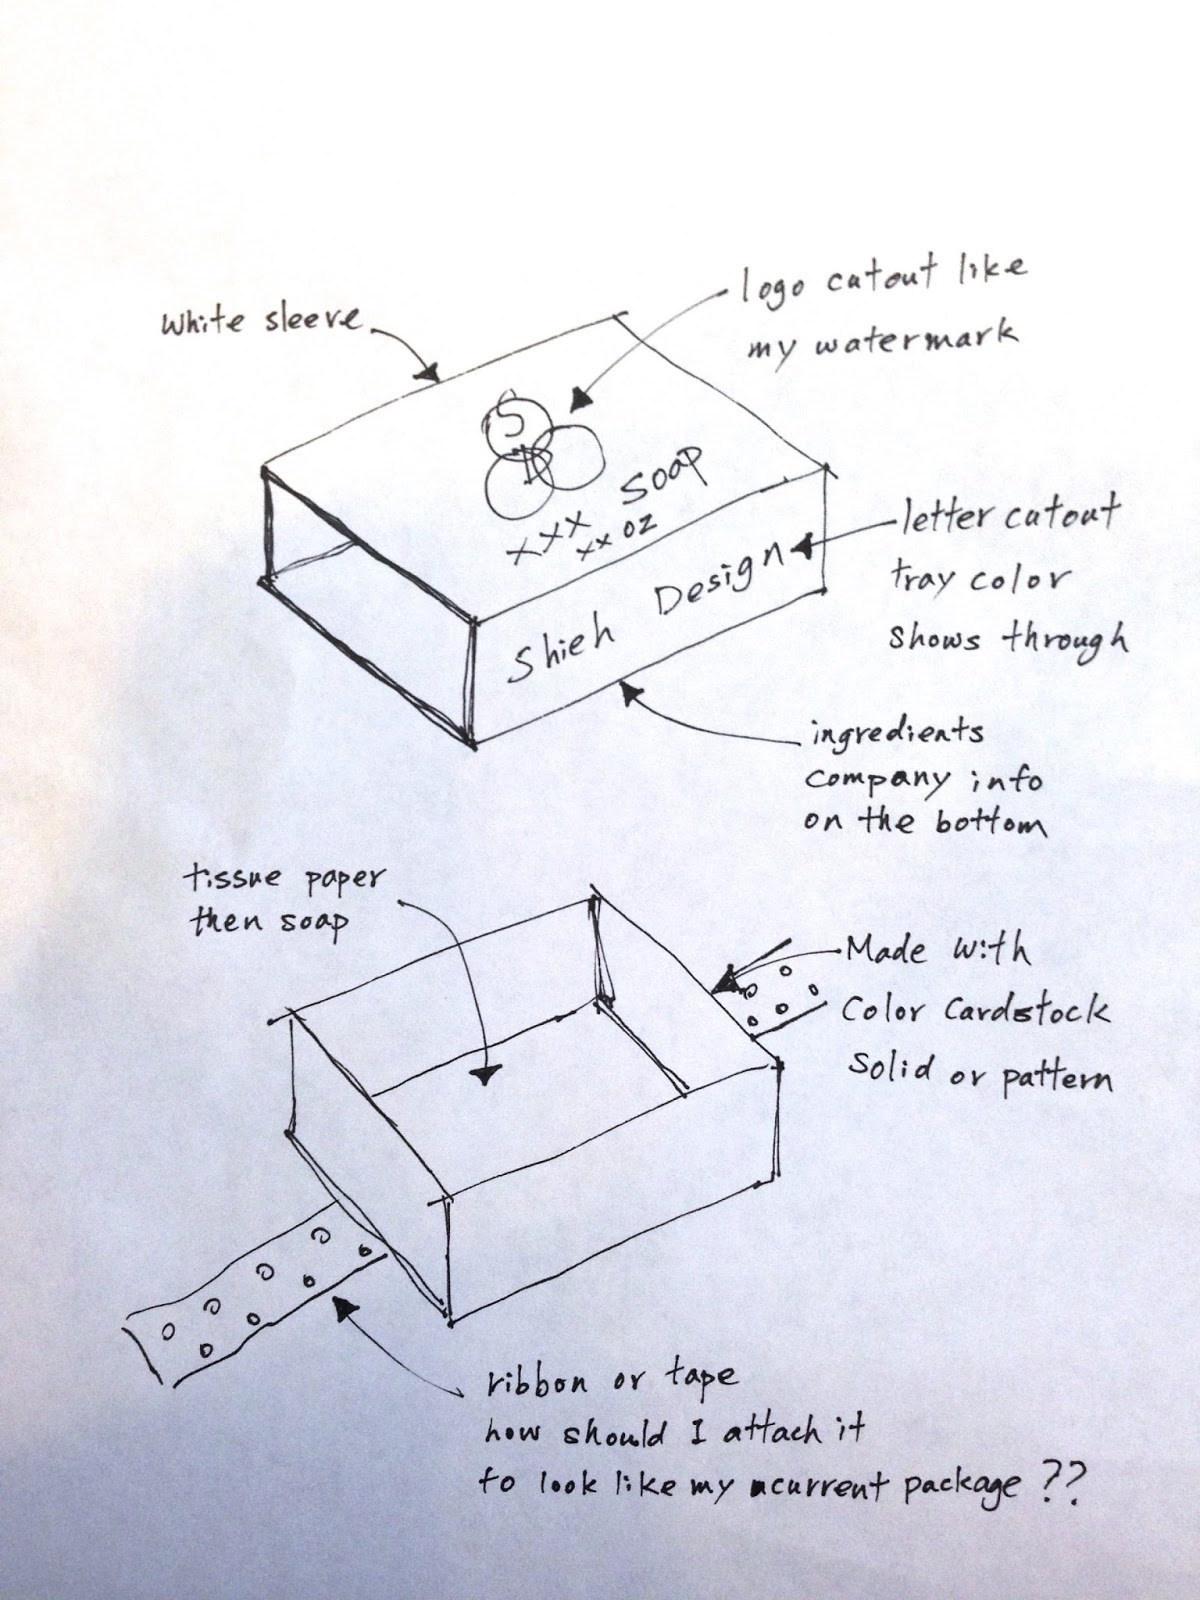 white sleeve
logo cutout like
my watermark
S
D
XXX Soap
XX OZ
Shieh Design
letter cutout
tray color
shows through
ingredients
company info
on the bottom
tissue paper
then soap
Made with
Color Cardstock
Solid or pattern
ribbon or tape
how should I attach it
to look like my current package ??